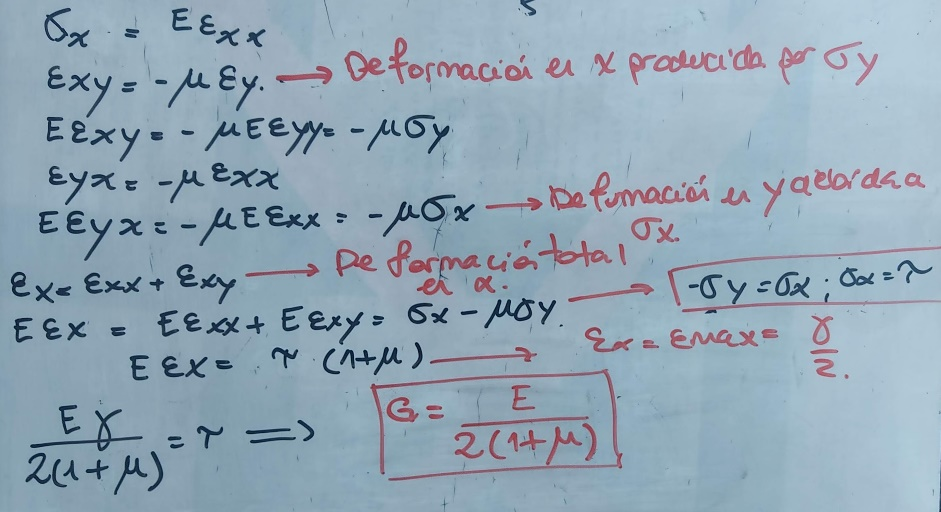 σx = Eεxx
εxy = -μ εy. → Deformación en x producida por σy
Eεxy = - μEεyy = - μσy
εyx = -μ εxx
Eεyx = - μEεxx = - μσx → Deformación en y debida a σx.
εx = εxx + εxy → Deformación total en x.
Eεx = Eεxx + Eεxy = σx - μσy. → -σy = σx ; σx = τ
Eεx = τ (1+μ) → εx = εmax = γ/2.
Eγ/2(1+μ) = τ ⇒ G = E/2(1+μ)